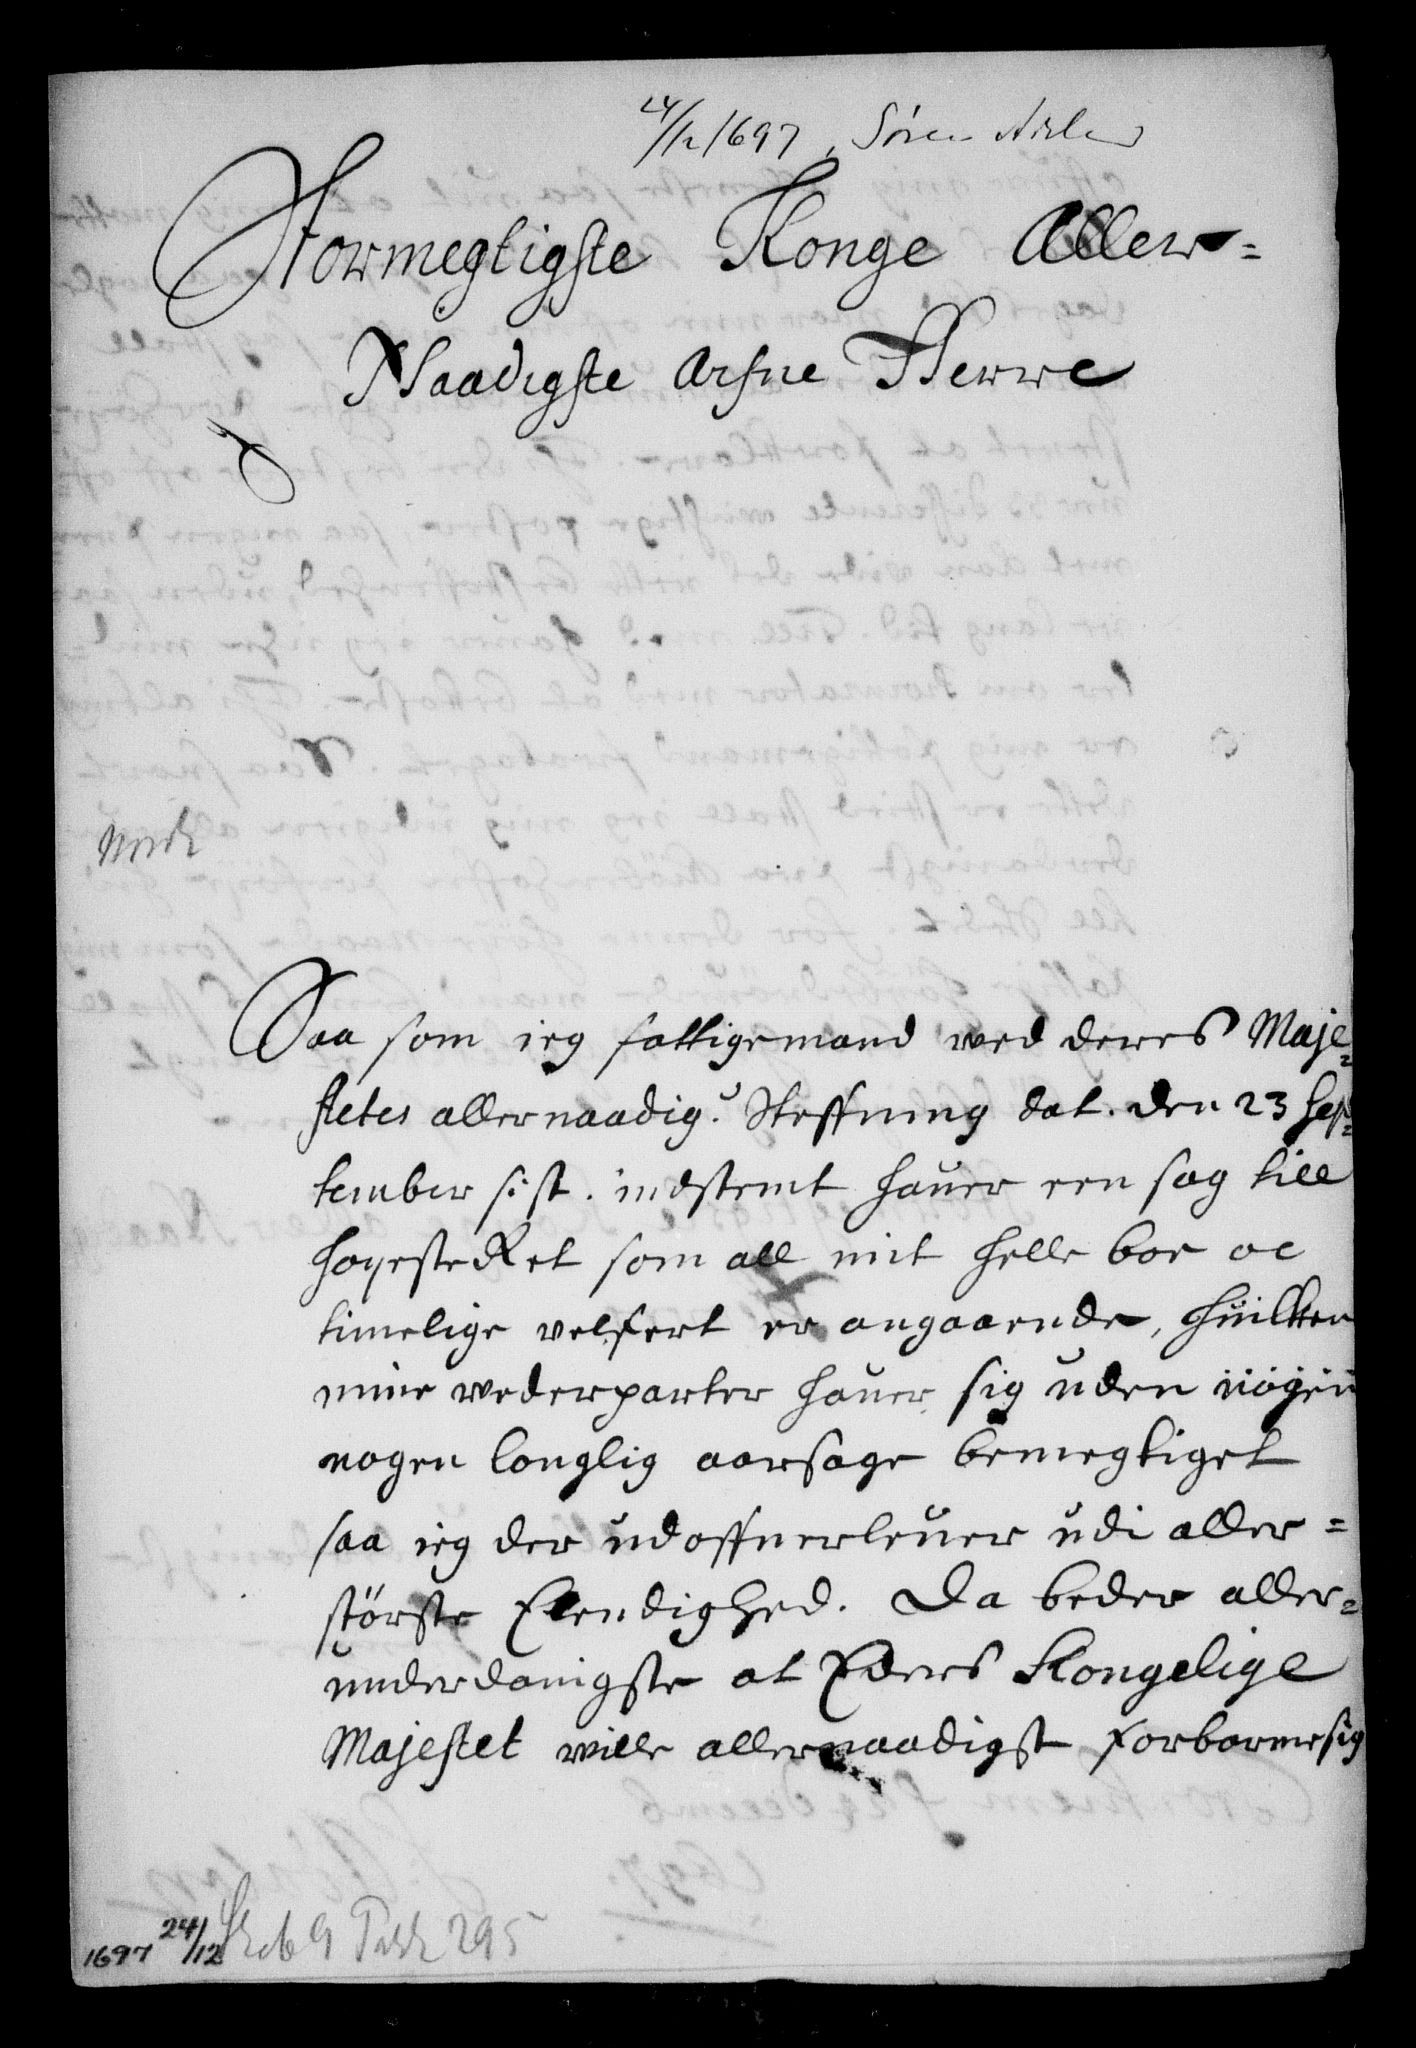 24/12 1697, Sören
Stormegtigste Konge Aller=
Naadigste Arfue Herre
Saa som ieg fattigemand wed deres Maje=
stetes allernaadig. Steffning dat. den 23 Sep=
tember sist. indstemt hauer een sag till
HöyesteRet som all mit helle boe oc
timelige velfert er angaaende, huilken
mine wederparter hauer sig uden
nogen louglig aarsage bemegtiget
saa ieg der udoffuer leuer udi aller=
störste Elendighed. Da beder aller=
underdanigste at Eders Kongelige
Majestet wille allernaadigst forbarme sig
1697 24/12 Skab 9 Pakk 295